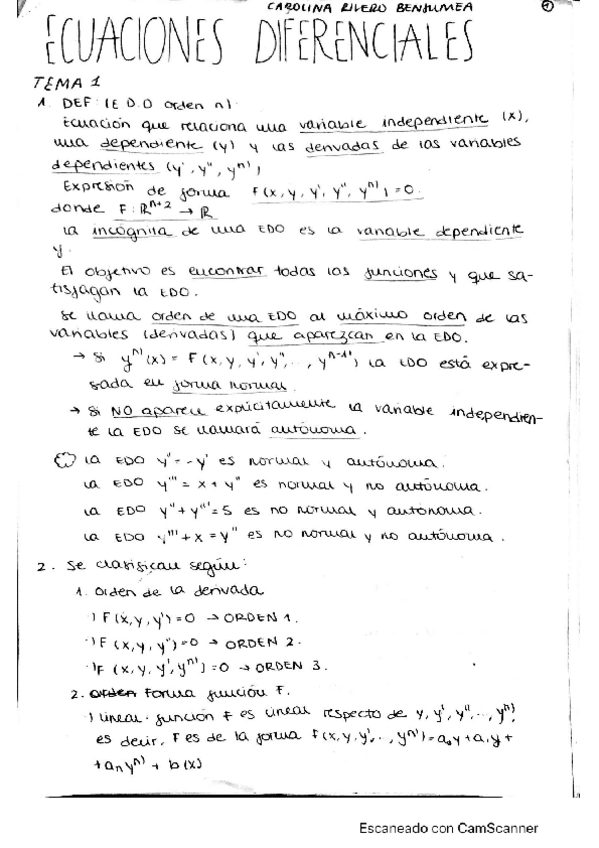 CAROLINA RIVERO BENJUMEA
1
ECUACIONES DIFERENCIALES
TEMA 1
1. DEF: (E.D.O orden n).
Ecuación que relaciona una variable independiente (x),
una dependiente (y) y las derivadas de las variables
dependientes (y', y'', yⁿ⁾)
Expresión de forma F(x, y, y', y'', yⁿ⁾) = 0.
donde F: ℝⁿ⁺² → ℝ
La incógnita de una EDO es la variable dependiente
y.
El objetivo es encontrar todas las funciones y que sa-
tisfagan la EDO.
Se llama orden de una EDO al máximo orden de las
variables (derivadas) que aparezcan en la EDO.
→ Si yⁿ⁾(x) = F(x, y, y', y'', ..., yⁿ⁻¹⁾) la EDO está expre-
sada en forma normal.
→ Si NO aparece explícitamente la variable independien-
te la EDO se llamará autónoma.
La EDO y'' = -y' es normal y autónoma.
La EDO y''' = x + y'' es normal y no autónoma.
La EDO y'' + y''' = 5 es no normal y autónoma.
La EDO y''' + x = y'' es no normal y no autónoma.
2. Se clasifican según:
1. Orden de la derivada
·) F(x, y, y') = 0 → ORDEN 1.
·) F (x, y, y'') = 0 → ORDEN 2.
·) F (x, y, y', yⁿ⁾) = 0 → ORDEN 3.
2. Orden Forma función F.
·) Lineal: función F es lineal respecto de y, y', y'', .., yⁿ⁾,
es decir, F es de la forma F(x, y, y', .. , yⁿ⁾) = a₀y + a₁y +
+ aₙyⁿ⁾ + b(x)
Escaneado con CamScanner